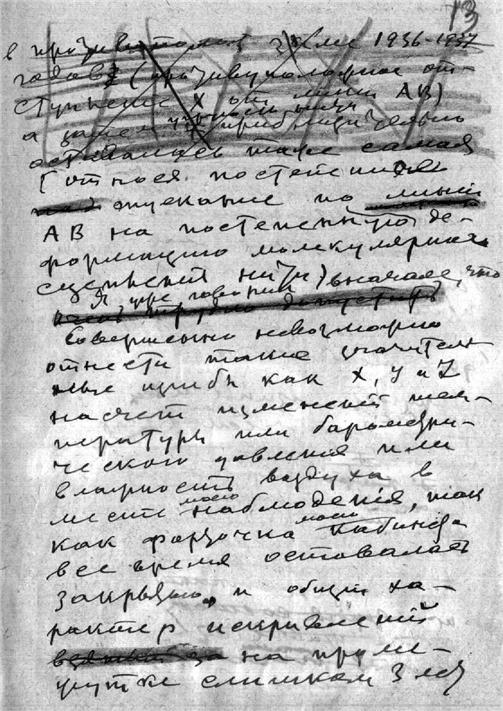 13
в зиме 1936-1937
годов (от-
ступление X от линии АВ)
а затем прибл
осталась такая самая
(относя постепенное
опускание по линии
АВ на постепенную де-
формацию молекулярных
сцеплений нити) вначале, что
Я уже говорил
Совершенно невозможно
отнести такие значитель
ные изгибы как X, У и Z
насчет изменений тем-
пературы или барометри-
ческого давления или
влажности воздуха в
месте моего наблюдения, так
как форточка моего кабинета
все время оставалась
закрытою, и общий ха-
рактер искривлений
на проме-
жутке слишком 3 лет